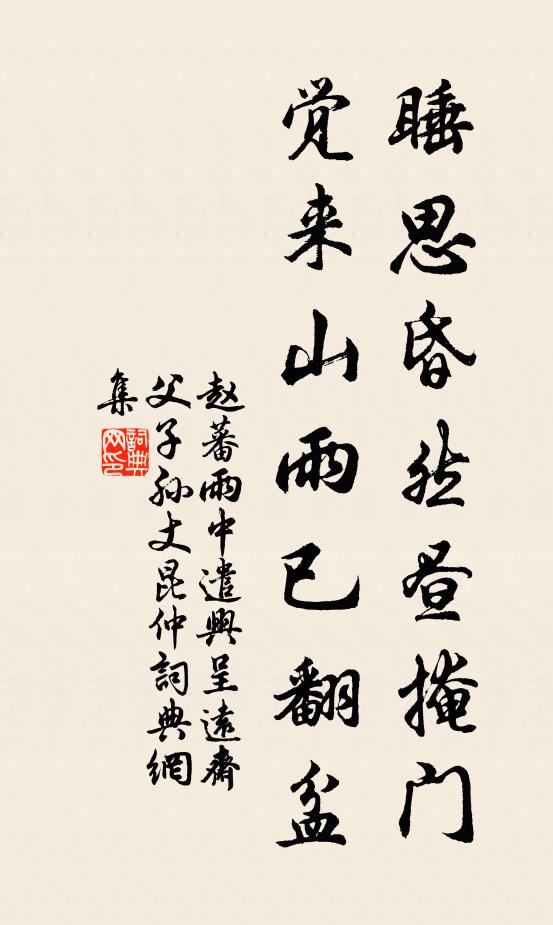 睡思昏然昼掩门
觉来山雨已翻盆
赵蕃雨中遣興呈遠齋
父子孙丈昆仲詞典網
集
詞典
网印